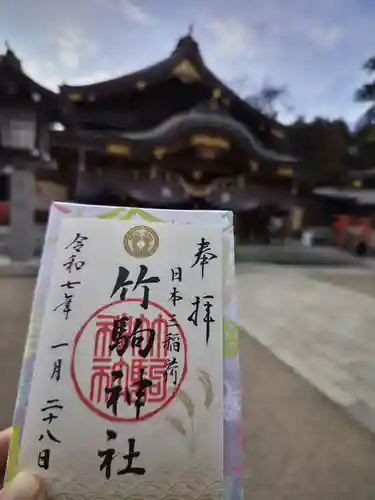 奉拝
日本三稲荷
竹駒神社
竹駒神社
令和七年一月二十八日